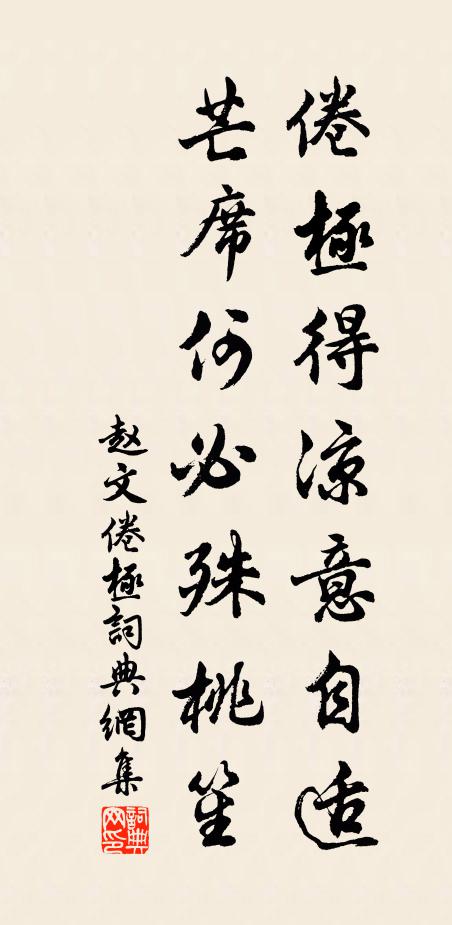 倦極得涼意自适
芒席何必殊桃笙
赵文倦極詞典網集
詞典网印